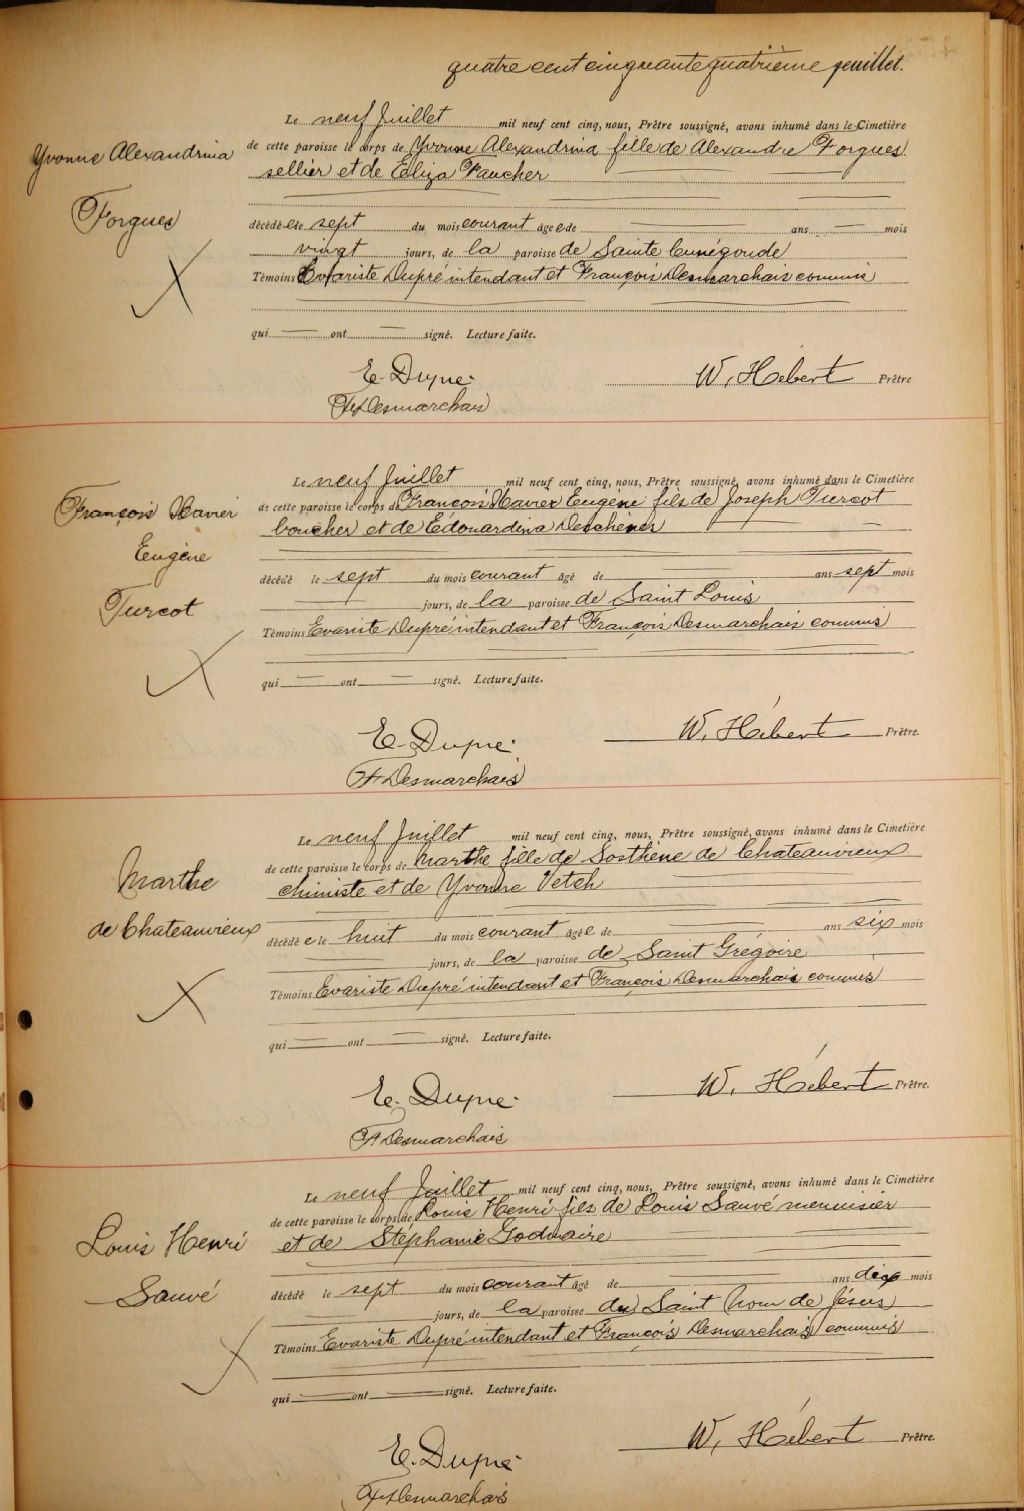 quatre cent cinquante quatrième feuillet.
Le neuf Juillet mil neuf cent cinq, nous, Prêtre soussigné, avons inhumé dans le Cimetière
Yvonne Alexandrina
de cette paroisse le corps de Yvonne Alexandrina fille de Alexandre Forgues
sellier et de Eliza Faucher
Forgues
décédée le sept du mois courant âgée de ans mois
vingt jours, de la paroisse de Sainte Cunégonde
Témoins Evariste Dupré intendant et François Desmarchais commis
qui ont signé. Lecture faite.
E. Dupré
W. Hébert Prêtre
F. X. Desmarchais
Le neuf Juillet mil neuf cent cinq, nous, Prêtre soussigné, avons inhumé dans le Cimetière
François Xavier
de cette paroisse le corps de François Xavier Eugène fils de Joseph Turcot
boucher et de Edouardina Deschènes
Eugène
décédé le sept du mois courant âgé de ans sept mois
Turcot
jours, de la paroisse de Saint Louis
Témoins Evariste Dupré intendant et François Desmarchais commis
qui ont signé. Lecture faite.
E. Dupré
W. Hébert Prêtre.
F. X. Desmarchais
Le neuf Juillet mil neuf cent cinq, nous, Prêtre soussigné, avons inhumé dans le Cimetière
Marthe
de cette paroisse le corps de Marthe fille de Sosthène de Chateauvieux
chimiste et de Yvonne Vetch
de Chateauvieux
décédée le huit du mois courant âgée de ans six mois
jours, de la paroisse de Saint Grégoire
Témoins Evariste Dupré intendant et François Desmarchais commis
qui ont signé. Lecture faite.
E. Dupré
W. Hébert Prêtre.
F. X. Desmarchais
Le neuf Juillet mil neuf cent cinq, nous, Prêtre soussigné, avons inhumé dans le Cimetière
de cette paroisse le corps de Louis Henri fils de Louis Sauvé menuisier
Louis Henri
et de Stéphanie Goduaire
Sauvé
décédé le sept du mois courant âgé de ans dix mois
jours, de la paroisse du Saint Nom de Jésus
Témoins Evariste Dupré intendant et François Desmarchais commis
qui ont signé. Lecture faite.
E. Dupré
W. Hébert Prêtre.
F. X. Desmarchais